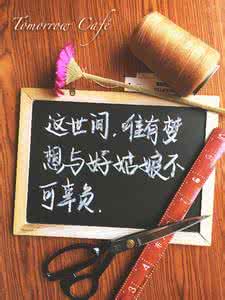 Tomorrow Café
这世间，唯有梦
想与好姑娘不
可辜负．